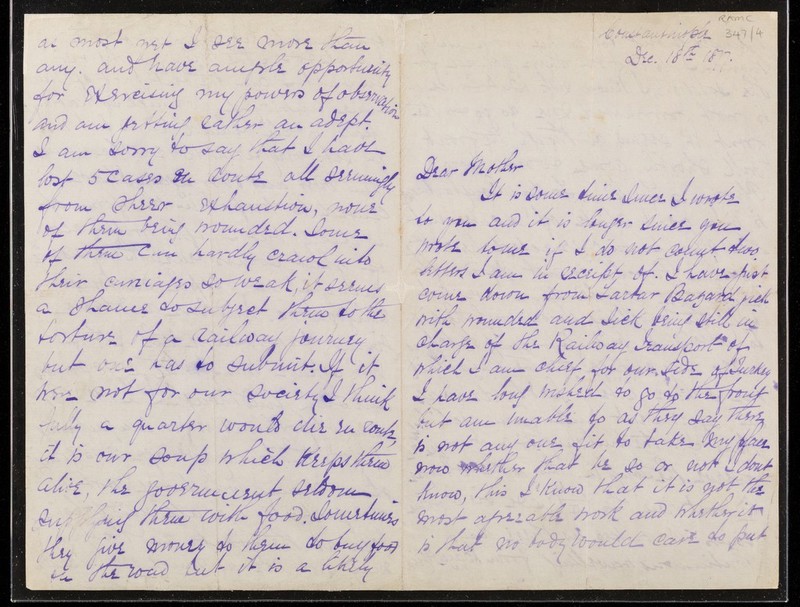 RAMC
347/4
Constantinople
Dec. 18th 187.
Dear Mother
It is some time since I wrote
to you and it is longer since you
wrote to me if I do not count two
letters I am in receipt of. I have just
come down from Tartar Bazard jick
with wounded and sick being still in
charge of the Railway Transport of
which I am chief for our side of Turkey
I have long wished to go to the front
but am unable to as they say there
is not any one fit to take my place
now whether that be so or not I dont
know, this I know that it is not the
most agreeable work and whether it
is that no body would care to put
as most yet I see more than
any. and have ample opportunity
for exercising my powers of observation
and am getting rather an adept.
I am sorry to say that I have
lost 5 cases en route all seemingly
from sheer exhaustion, none
of them being wounded. Some
of them can hardly crawl into
their carriages so weak, it seems
a shame to subject them to the
torture of a railway journey
but one has to submit. If it
were not for our society I think
fully a quarter would die en route,
it is our soup which keeps them
alive, the government, seldom
supplying them with food. Sometimes
they give money to them to buy food
on the road but it is a likely